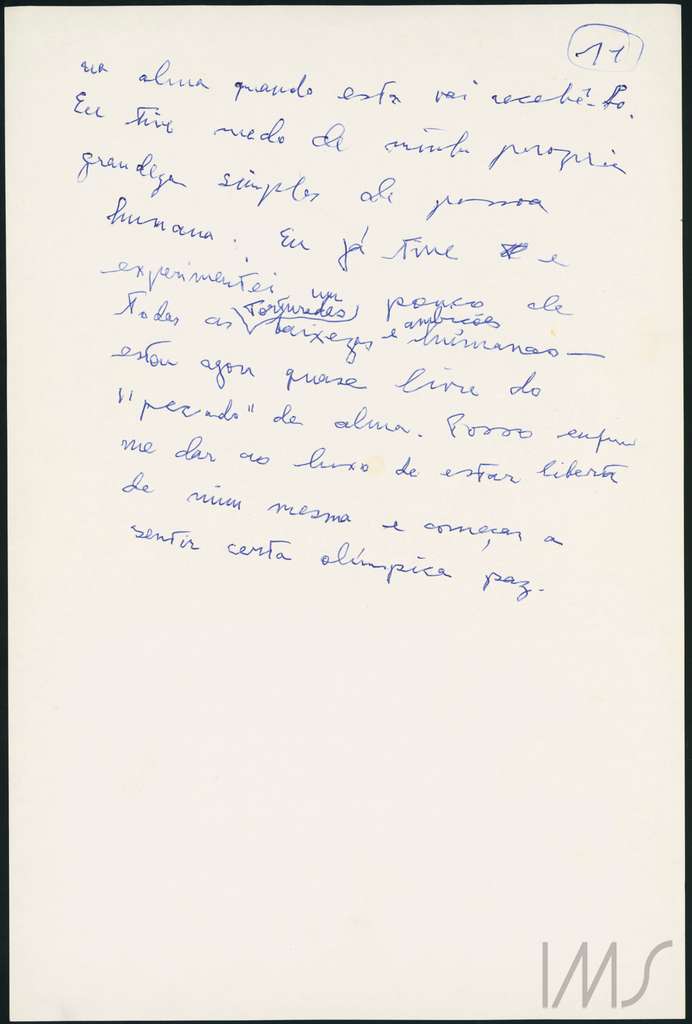 11
na alma quando esta vai recebê-lo.
Eu tive medo de minha propria
grandeza simples de pessoa
humana. Eu já tive e
experimentei um pouco de
Todas as torturadas baixezas e ambições humanas —
estou agora quase livre do
"pecado" da alma. Posso enfim
me dar ao luxo de estar liberta
de mim mesma e começar a
sentir certa olímpica paz.
IMS